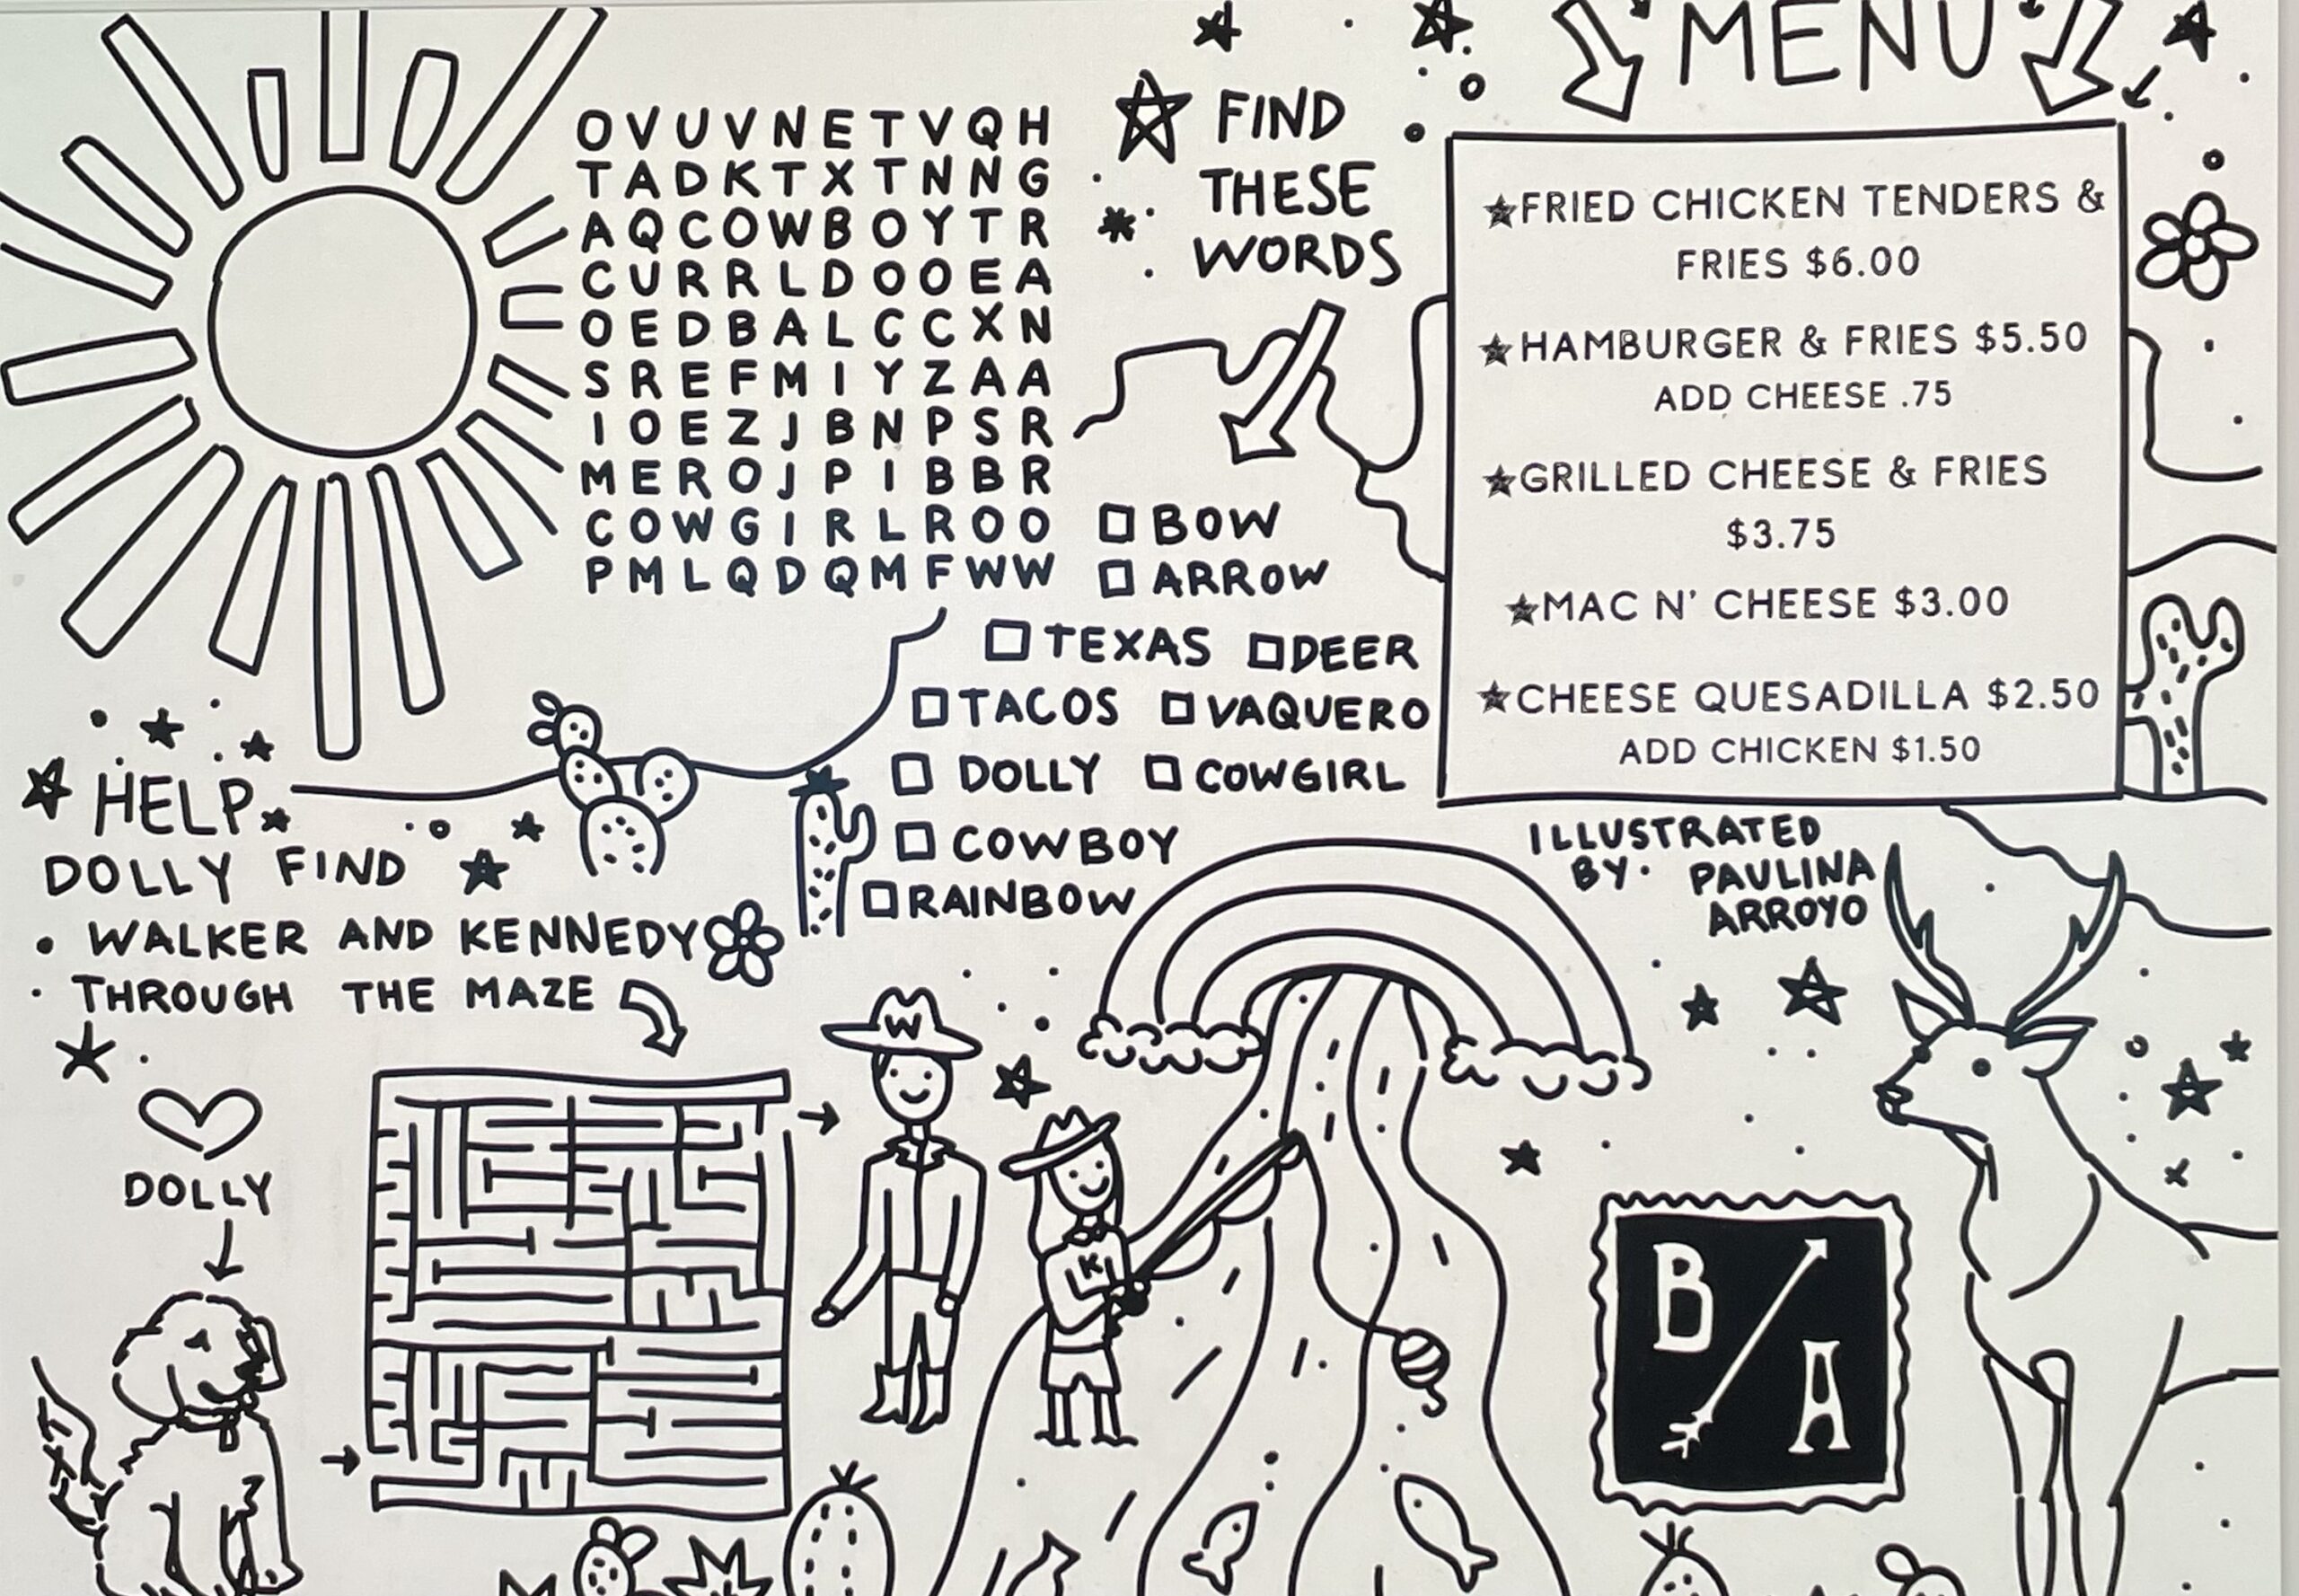 MENU
O V U V N E T V Q H
T A D K T X T N N G
A Q C O W B O Y T R
C U R R L D O O E A
O E D B A L C C X N
S R E F M I Y Z A A
I O E Z J B N P S R
M E R O J P I B B R
C O W G I R L R O O
P M L Q D Q M F W W
FIND
THESE
WORDS
BOW
ARROW
TEXAS DEER
TACOS VAQUERO
DOLLY COWGIRL
COWBOY
RAINBOW
★FRIED CHICKEN TENDERS &
FRIES $6.00
★HAMBURGER & FRIES $5.50
ADD CHEESE .75
★GRILLED CHEESE & FRIES
$3.75
★MAC N' CHEESE $3.00
★CHEESE QUESADILLA $2.50
ADD CHICKEN $1.50
ILLUSTRATED
BY· PAULINA
ARROYO
HELP
DOLLY FIND
WALKER AND KENNEDY
THROUGH THE MAZE
DOLLY
W
K
B
A